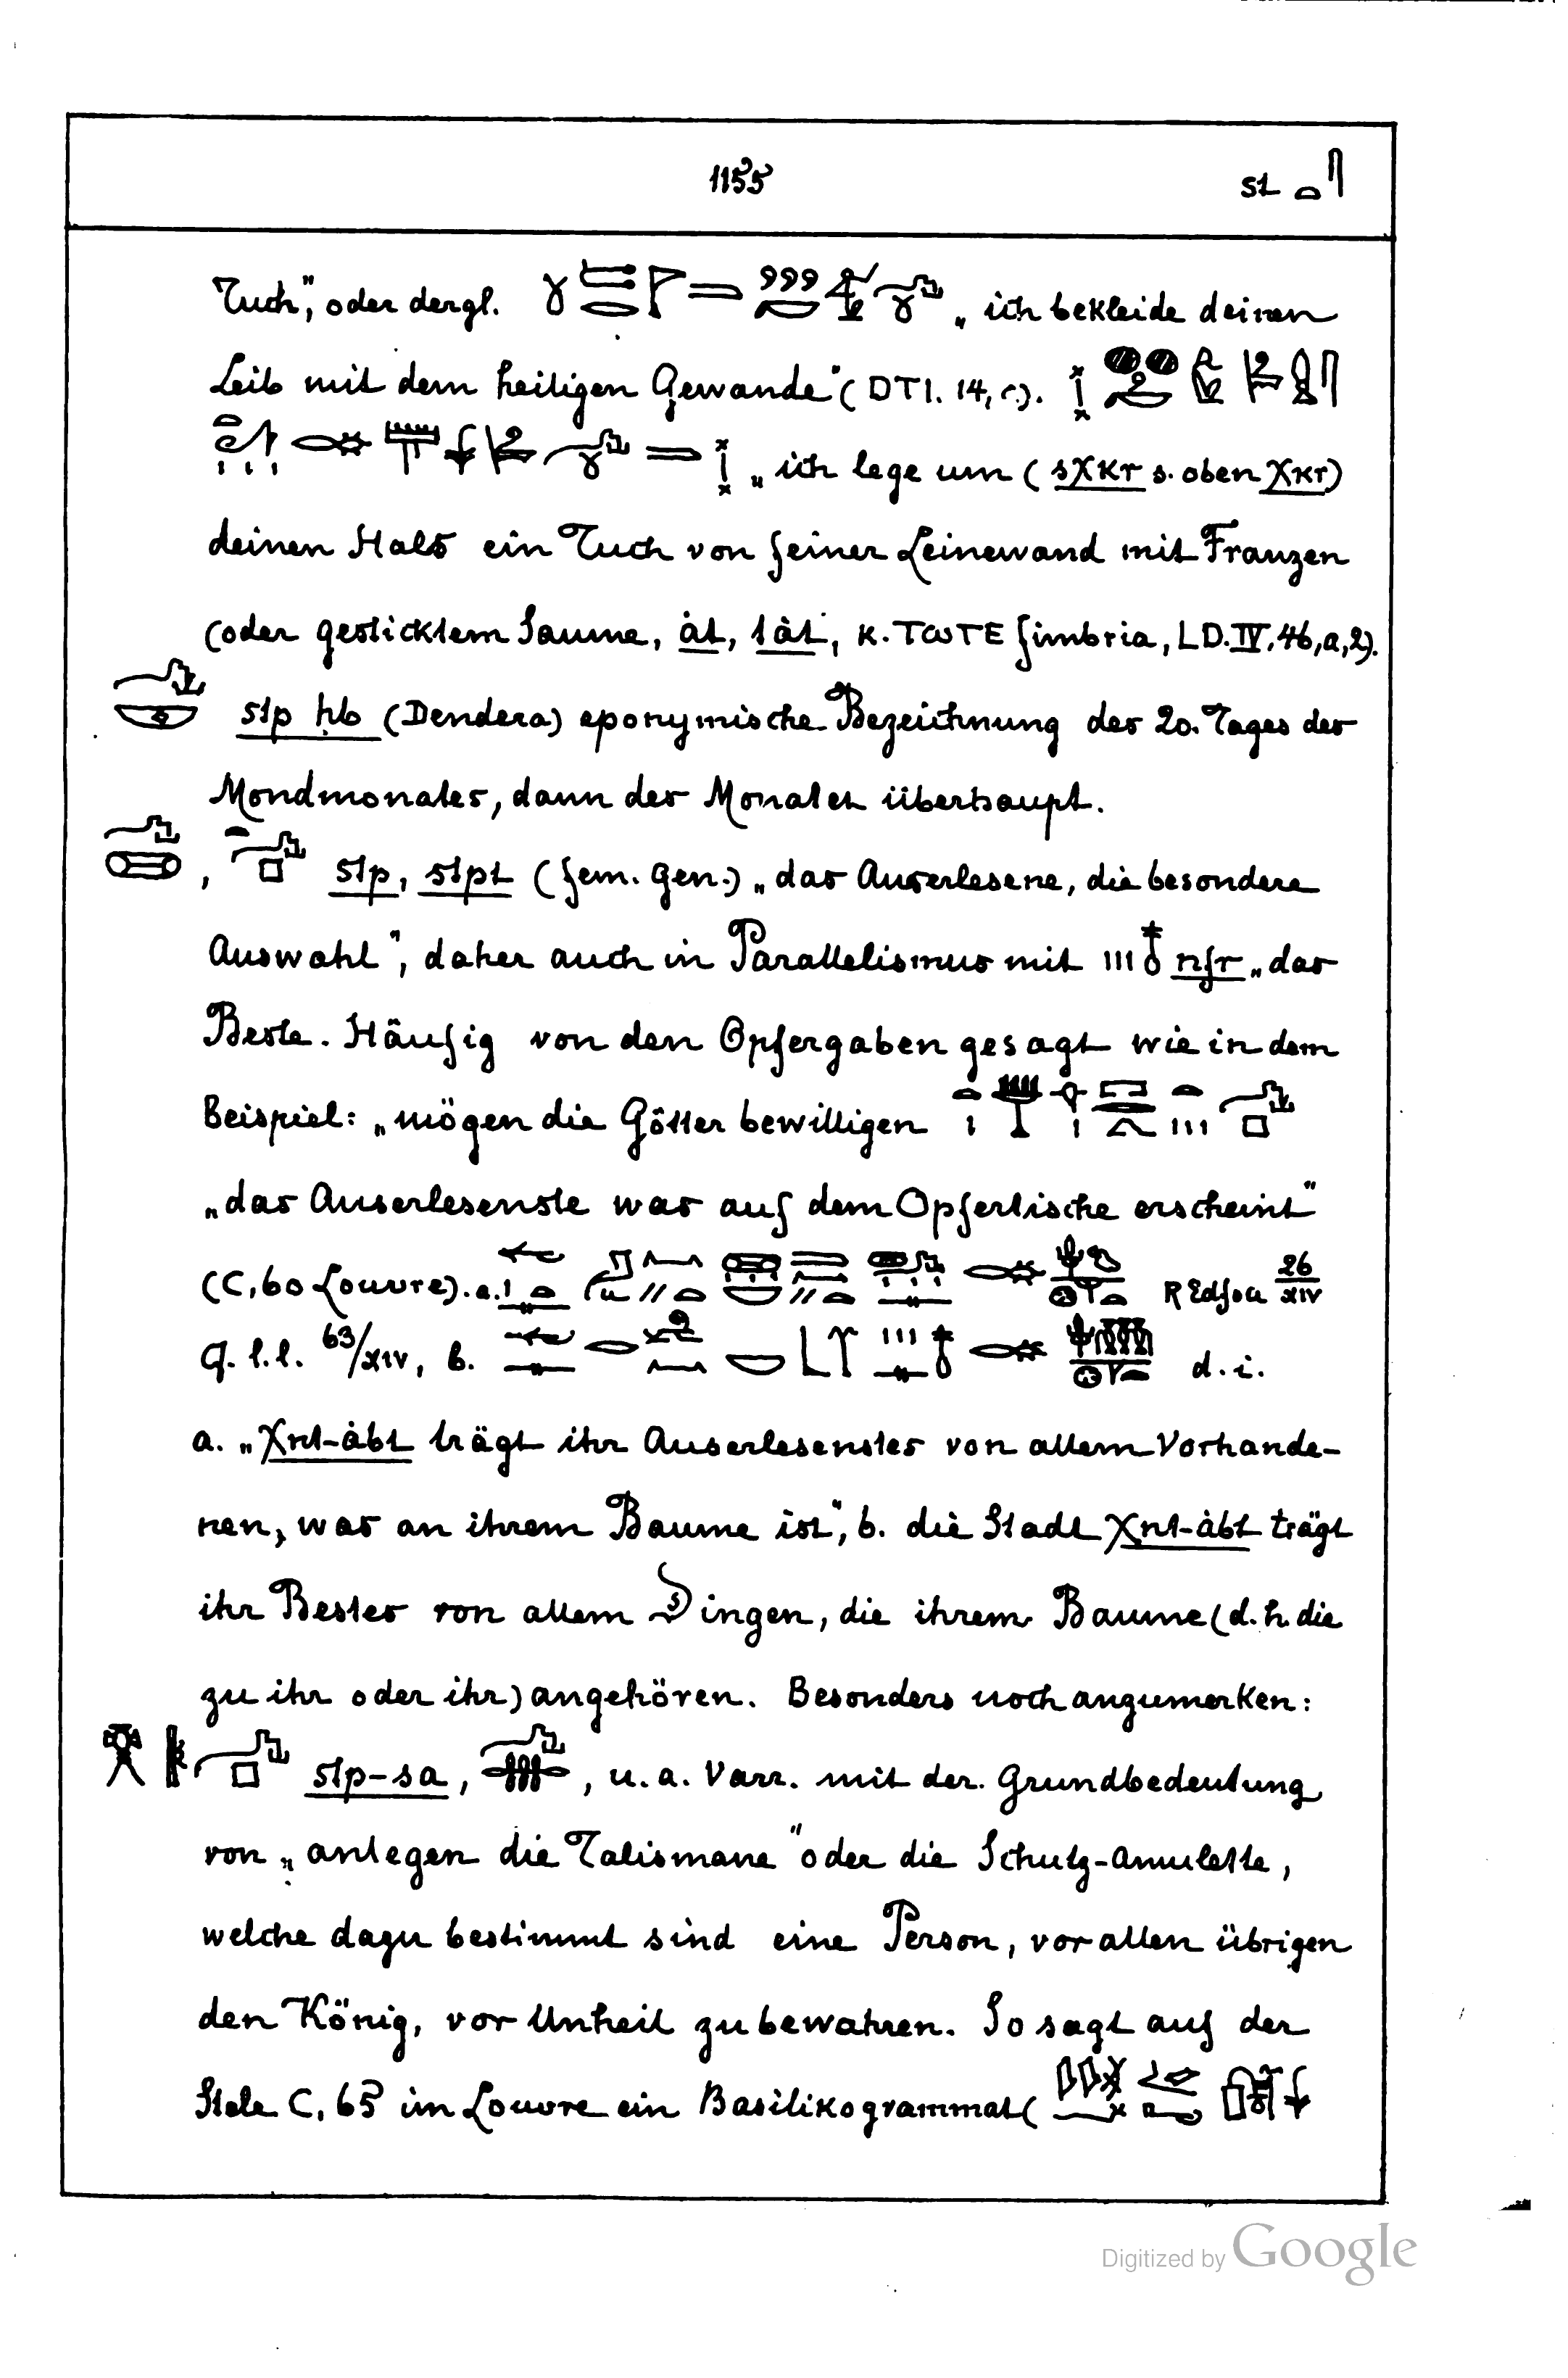 1155 st
Tuch", oder dergl. „ich bekleide deinen
Leib mit dem heiligen Gewande" (DTI. 14, c).
„ich lege um (sXKr s. oben XKr)
deinen Hals ein Tuch von feiner Leinewand mit Franzen
(oder gesticktem Saume, ȧt, tȧt, K. ⲧⲱⲧⲉ fimbria, LD. IV, 46, a, 2).
stp ḥb (Dendera) eponymische Bezeichnung des 20. Tages des
Mondmonates, dann des Monates überhaupt.
, stp, stpt (fem. gen.) „das Auserlesene, die besondere
Auswahl", daher auch in Parallelismus mit nfr „das
Beste. Häufig von den Opfergaben gesagt wie in dem
Beispiel: „mögen die Götter bewilligen
„das Auserlesenste was auf dem Opfertische erscheint"
(C, 60 Louvre). a. R Edfou 26/XIV
q. l. l. 63/XIV, b. d. i.
a. „Xnt-ȧbt trägt ihr Auserlesenstes von allem Vorhande-
nen, was an ihrem Baume ist", b. die Stadt Xnt-ȧbt trägt
ihr Bestes von allem Dingen, die ihrem Baume (d. h. die
zu ihr oder ihr) angehören. Besonders noch anzumerken:
stp-sa, , u. a. Varr. mit der Grundbedeutung
von „anlegen die Talismane" oder die Schutz-Amulette,
welche dazu bestimmt sind eine Person, vor allen übrigen
den König, vor Unheil zu bewahren. So sagt auf der
Stele C, 65 im Louvre ein Basilikogrammat (
Digitized by Google